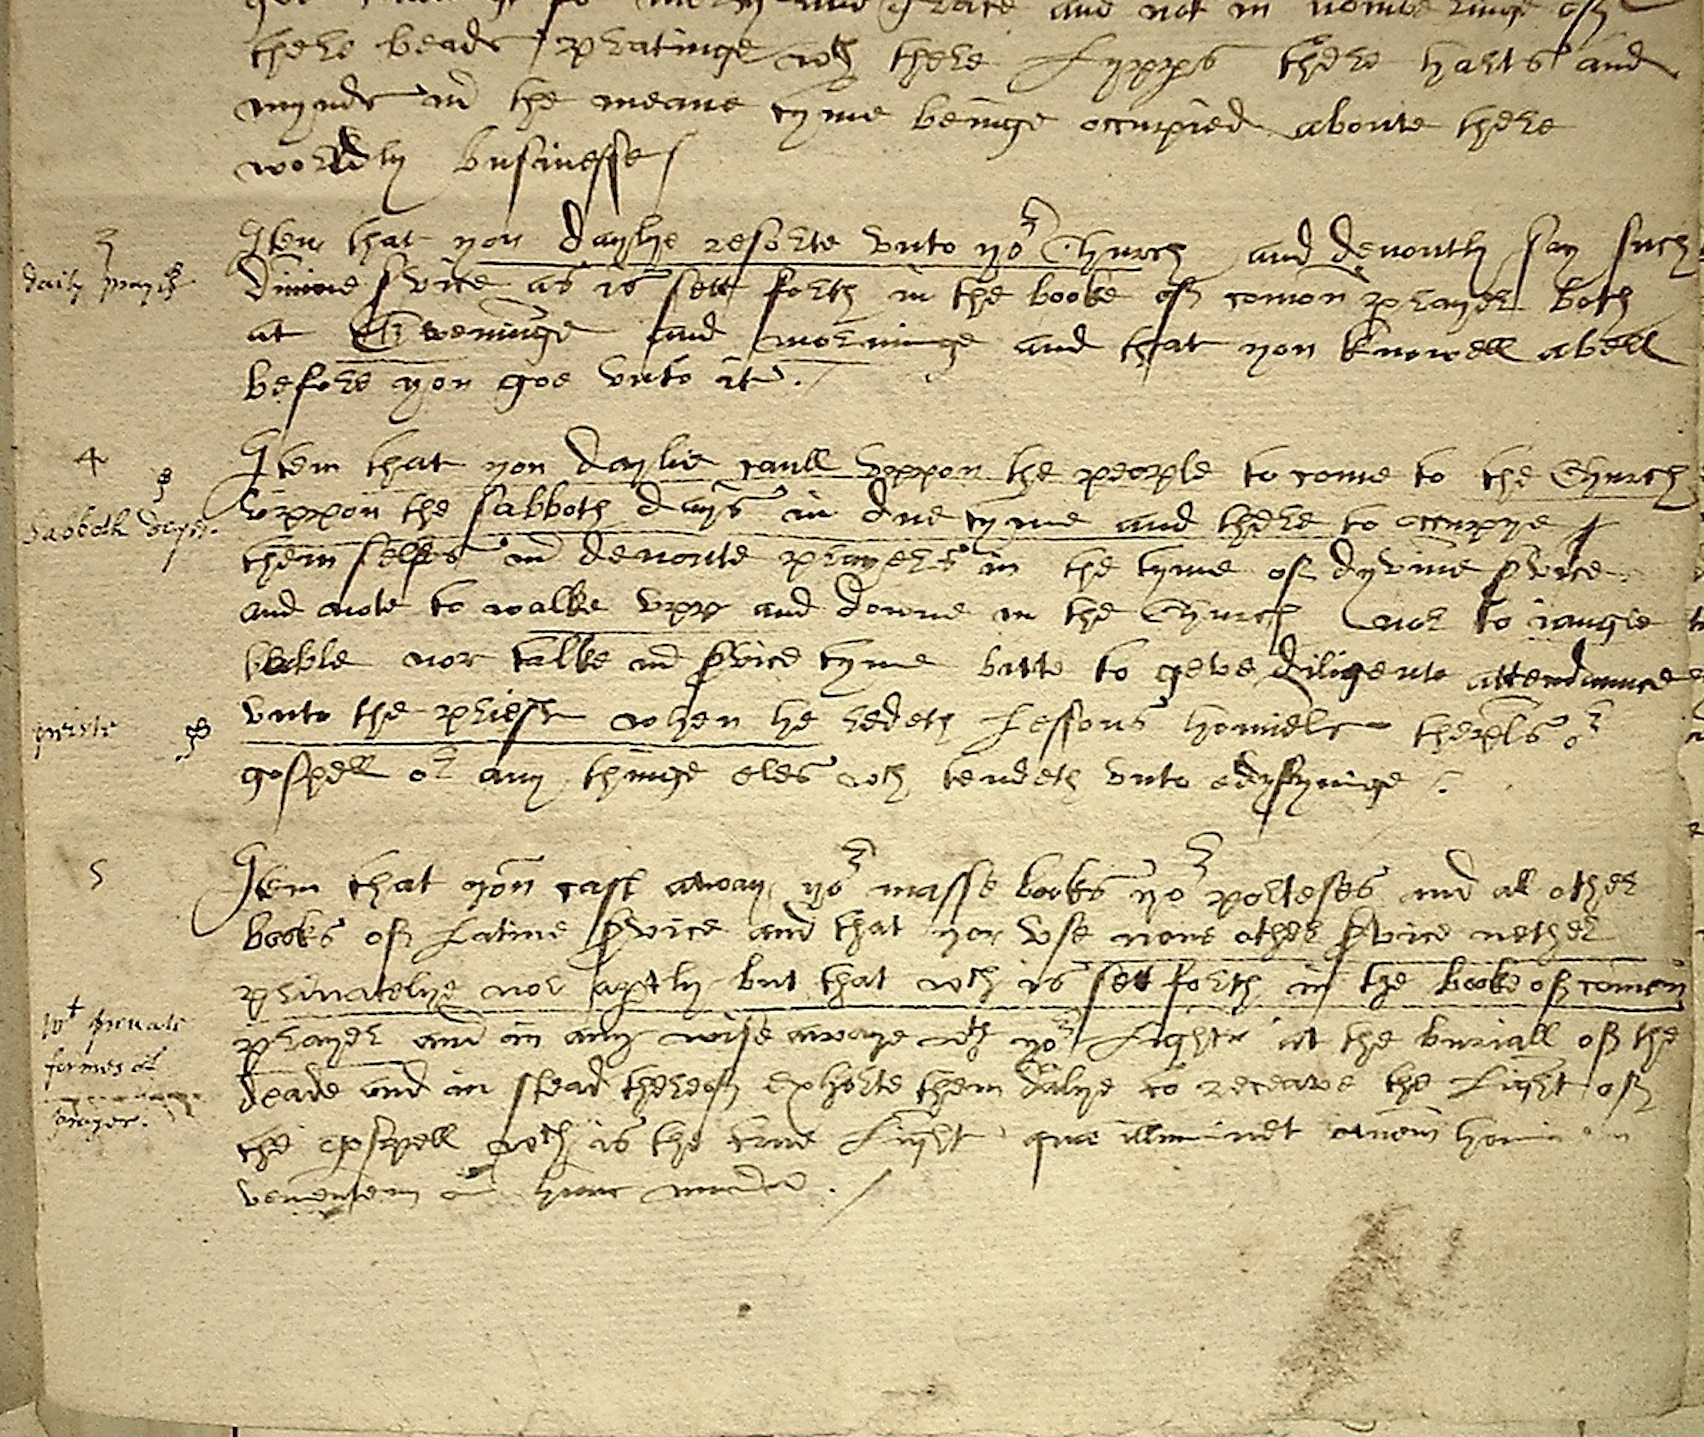 and not in nomberinge of
there beads pratinge wth there lypps there harts and
mynds in the meane tyme beinge occupied aboute there
worldly businesse
3
daily prayer
Item that you daylye resorte vnto yor Church and devoutly say such
divine service as is sett forth in the booke of comon prayer both
at Eveninge and morninge and that you knowell a bell
before you goe vnto it.
4
Sabboth dayes.
Item that you daylie caull vppon the people to come to the Church
vppon the sabboth days in due tyme and there to occupye
them selfes in devoute prayers in the tyme of dyvine service
and note to walke vpp and downe in the Church nor to iangle
bable nor talke in service tyme butte to geve diligente attendaunce
preiste
vnto the priest when he redeth lessons homiels thepls or
gospell or any thinge eles wch tendeth vnto edyfyinge
5
Item that you cast away yor masse books yor porteses and all other
books of Latine service and that you vse none other service nether
privatelye nor aptly but that wch is sett forth in the booke of comon
wt private
formes of
prayer.
prayer and in any wise awaye wth yor Lights at the buriall of the
deade and in stead thereof exhorte them dalye to receave the Light of
the gospell wch is the true Light que illuminet omnem hominem
venientem in hunc mundu.